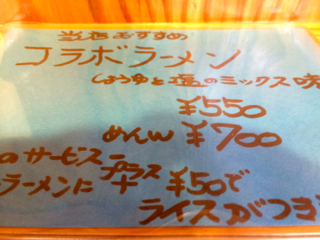 当店おすすめ
コラボラーメン
しょうゆと塩のミックス味
¥550
めんW ¥700
のサービス
ラーメンに プラス + ¥50で
ライスがつき